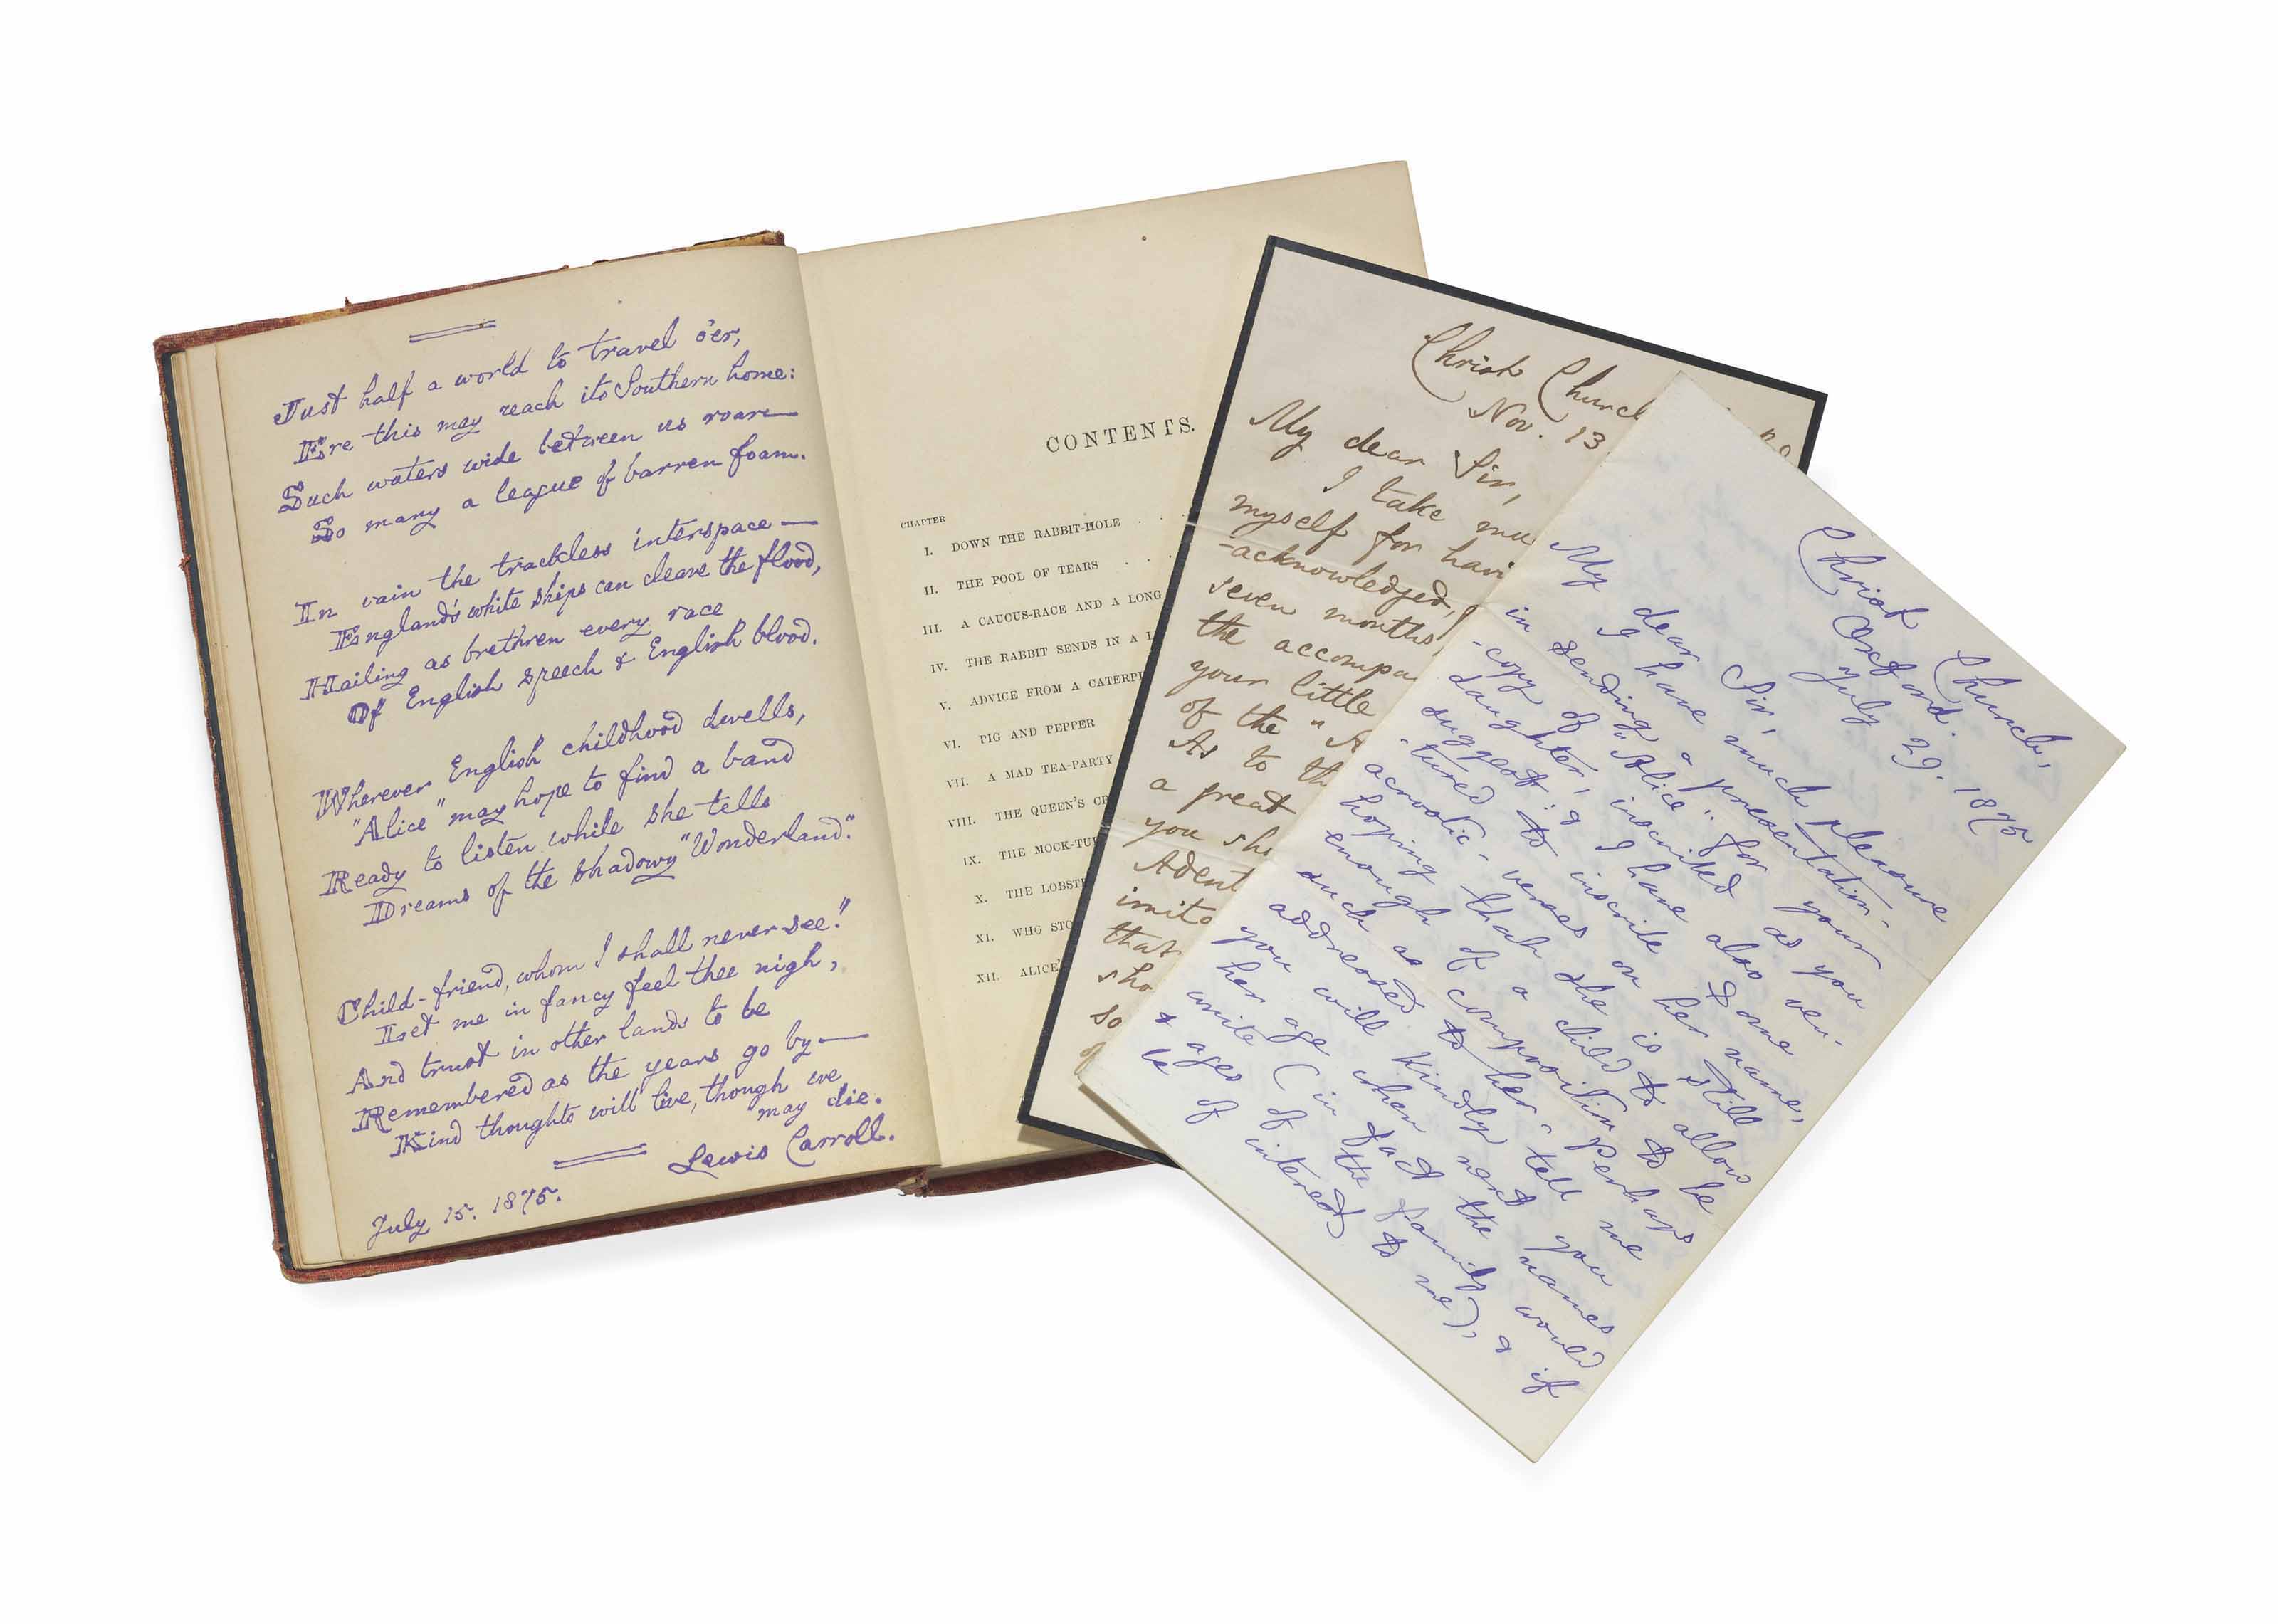 Just half a world to travel o'er,
Ere this may reach its Southern home:
Such waters wide between us roar—
So many a league of barren foam.
In vain the trackless interspace—
England's white ships can cleave the flood,
Hailing as brethren every race
Of English speech & English blood.
Wherever English childhood dwells,
"Alice" may hope to find a band
Ready to listen while she tells
Dreams of the shadowy "Wonderland".
Child-friend, whom I shall never see!
Let me in fancy feel thee nigh,
And trust in other lands to be
Remembered as the years go by—
Kind thoughts will live, though we
may die.
Lewis Carroll.
July 15. 1875.
CONTENTS.
CHAPTER
I. DOWN THE RABBIT-HOLE . .
II. THE POOL OF TEARS . .
III. A CAUCUS-RACE AND A LONG
IV. THE RABBIT SENDS IN A L
V. ADVICE FROM A CATERPI
VI. PIG AND PEPPER
VII. A MAD TEA-PARTY
VIII. THE QUEEN'S CR
IX. THE MOCK-TUR
X. THE LOBST
XI. WHO STO
XII. ALICE'
Christ Church
Nov. 13
My dear Sir,
I take mu
myself for havi
-acknowledged,
seven months,
the accompa
your little
of the "A
As to th
a great
you sh
Advent
imita
that
sho
so
Christ Church,
Oxford.
July 29. 1875
My dear Sir,
I have much pleasure
in sending a presentation-
-copy of "Alice" for your
daughter, inscribed as you
suggest: & I have also ven-
-tured to inscribe some
acrostic-verses on her name,
hoping that she is still
enough of a child to allow
such a composition to be
addressed to her. Perhaps
you will kindly tell me
her age when next you
write (in fact the names
& ages of the family would
be of interest to me), & if